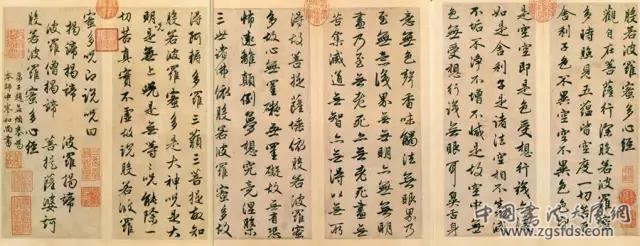 般若波羅蜜多心經
觀自在菩薩行深般若波羅蜜
多時照見五蘊皆空度一切苦厄
舍利子色不異空空不異色色即
是空空即是色受想行識亦復
如是舍利子是諸法空相不生不滅
不垢不淨不增不減是故空中無
色無受想行識無眼耳鼻舌身
意無色聲香味觸法無眼界乃
至無意識界無無明亦無無明
盡乃至無老死亦無老死盡無
苦集滅道無智亦無得以無所
得故菩提薩埵依般若波羅
蜜多故心無罣礙無罣礙故無有恐
怖遠離顛倒夢想究竟涅槃
三世諸佛依般若波羅蜜多故
得阿耨多羅三藐三菩提故知
般若波羅蜜多是大神呪是大
明呪是無上呪是無等等呪能除一
切苦真實不虛故說般若波羅
蜜多呪即說呪曰
揭諦揭諦 波羅揭諦
波羅僧揭諦 菩提薩婆訶
般若波羅蜜多心經
弟子趙孟頫奉為
本師中峯和尚書
www.zgsfds.com